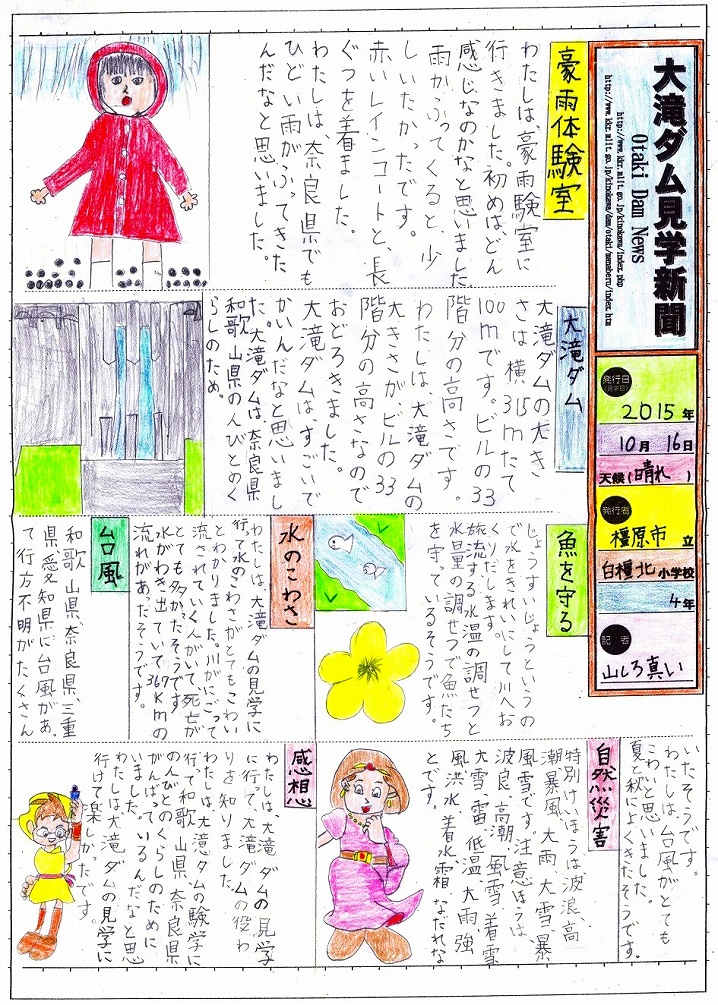 大滝ダム見学新聞
Otaki Dam News
http://www.kkr.mlit.go.jp/kinokawa/index.php
http://www.kkr.mlit.go.jp/kinokawa/dam/otaki/manaberu/index.htm
発行日
2015年
10月 16日
天候(晴れ)
発行者
橿原市 立
白橿北 小学校
4年
記者
山しろ真い
豪雨体験室
わたしは、豪雨験室に
行きました。初めはどん
感じなのかなと思いました
雨がふってくると、少
しいたかったです。
赤いレインコートと、長
ぐつを着ました。
わたしは、奈良県でも
ひどい雨がふってきた
んだなと思いました。
大滝ダム
大滝ダムの大き
さは横315mたて
100mです。ビルの33
階分の高さです。
わたしは、大滝ダムの
大きさがビルの33
階分の高さなので
おどろきました。
大滝ダムはすごいで
かいんだなと思いまし
た。大滝ダムは奈良県
和歌山県の人びとのく
らしのため。
魚を守る
じょうすいじょうというの
で水をきれいにして川へお
くりだします。
放流する水温の調せつと
水量の調せつで魚たち
を守っているそうです。
水のこわさ
わたしは、大滝ダムの見学に
行って水のこわさがとてもこわい
とわかりました。川がにごって
流されていく人がいて死亡が
とても多かたそうです
水がわき出ていて367Kmの
流れがあたそうです。
台風
和歌山県、奈良県、三重
県、愛知県に台風があ、
て行方不明がたくさん
いたそうです。
わたしは、台風がとても
こわいと思いました。
夏と秋によくきたそうです。
自然災害
特別けいほうは波浪、高
潮、暴風、大雨、大雪、暴
風雪です。注意ほうは、
波良、高潮、風雪、着雪
大雪、雷、低温、大雨、強
風、洪水、着氷、霜、なだれな
とです。
感想
わたしは、大滝ダムの見学
に行って、大滝ダムの役わ
りを知りました。
わたしは、大滝ダムの験学に
行て和歌山県、奈良県
の人びとのくらしのために
がんばっているんだなと思
いました。
わたしは大滝ダムの見学に
行けて楽しかったです。